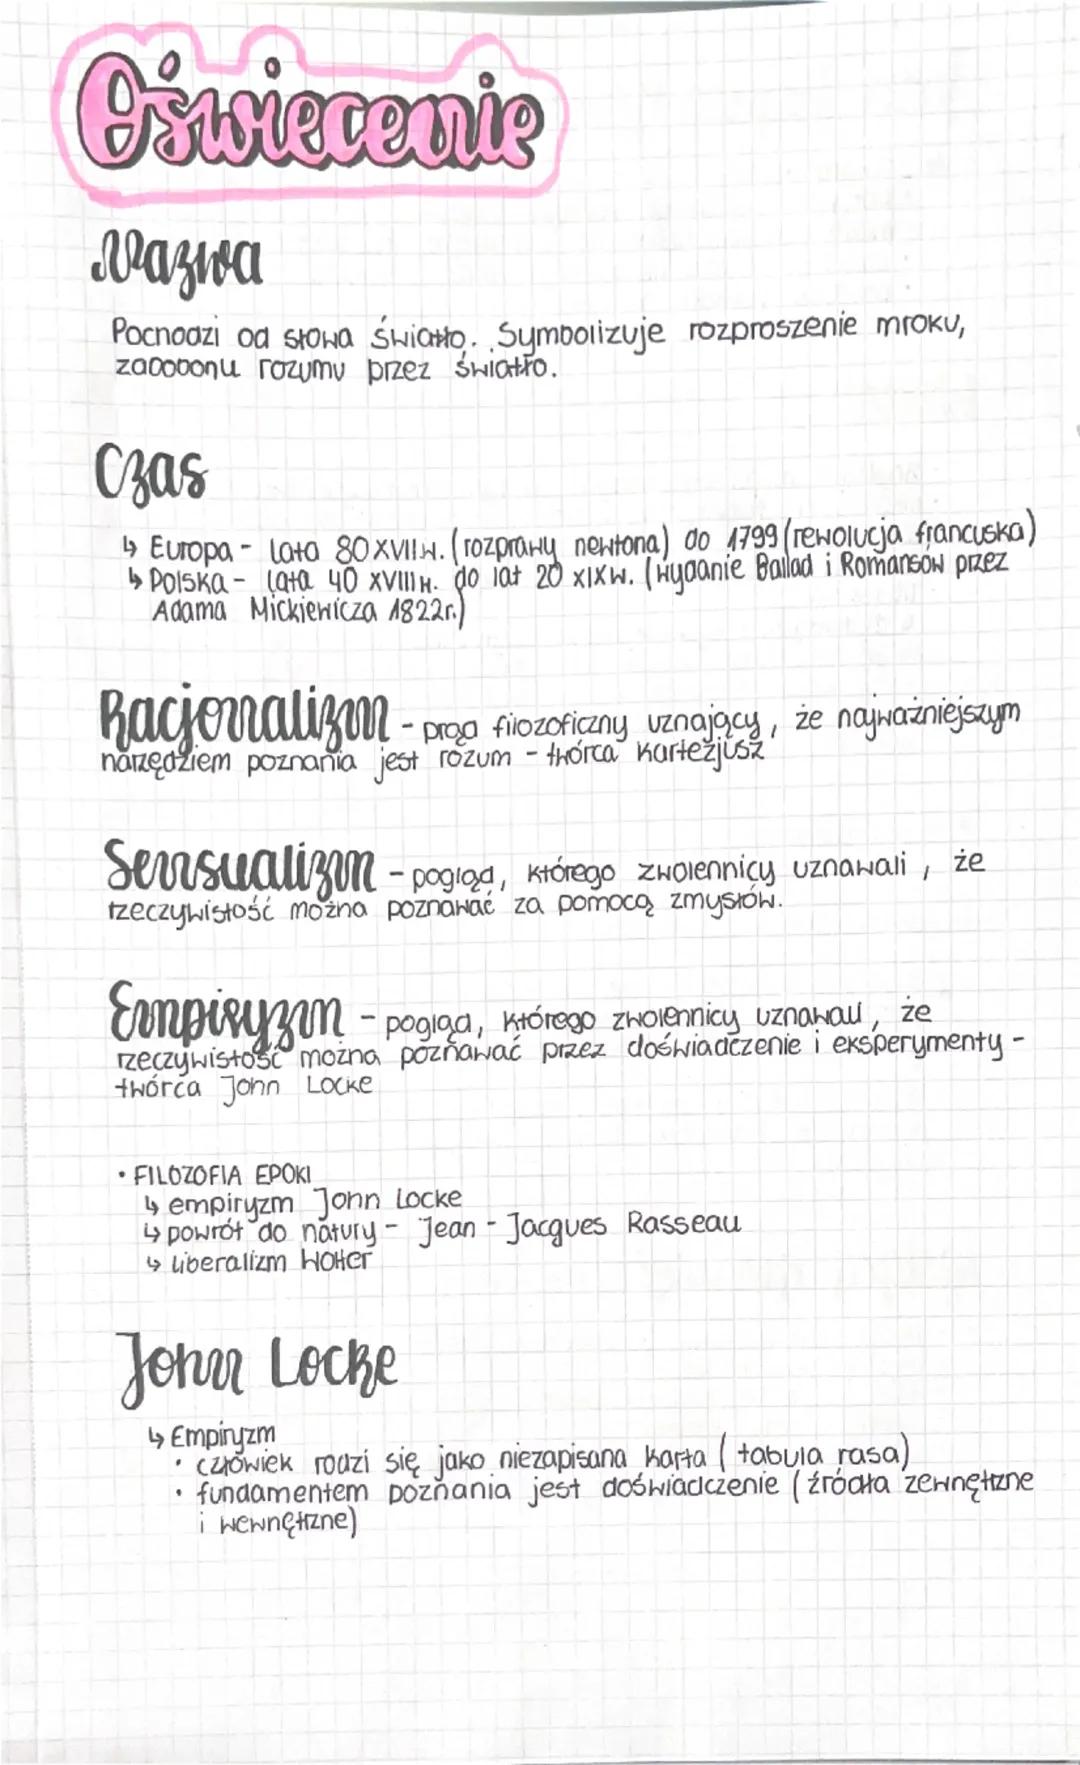 Oświecenie
Nazwa
Pochodzi od słowa światło. Symbolizuje rozproszenie mroku,
zabobonu rozumu przez światło.
Czas
↳ Europa - lata 80 XVII w. (rozprawy newtona) do 1799 (rewolucja francuska)
↳ Polska - lata 40 XVIII w. do lat 20 XIX w. (wydanie Ballad i Romansów przez
Adama Mickiewicza 1822r.)
Racjonalizm - prąd filozoficzny uznający, że najważniejszym
narzędziem poznania jest rozum - twórca Kartezjusz
Sensualizm - pogląd, którego zwolennicy uznawali, że
rzeczywistość można poznawać za pomocą zmysłów.
Empiryzm - pogląd, którego zwolennicy uznawali, że
rzeczywistość można poznawać przez doświadczenie i eksperymenty -
twórca John Locke
• FILOZOFIA EPOKI
↳ empiryzm John Locke
↳ powrót do natury - Jean - Jacques Rasseau
↳ liberalizm Wolter
John Locke
↳ Empiryzm
• człowiek rodzi się jako niezapisana karta (tabula rasa)
• fundamentem poznania jest doświadczenie (źródła zewnętrzne
i wewnętrzne)